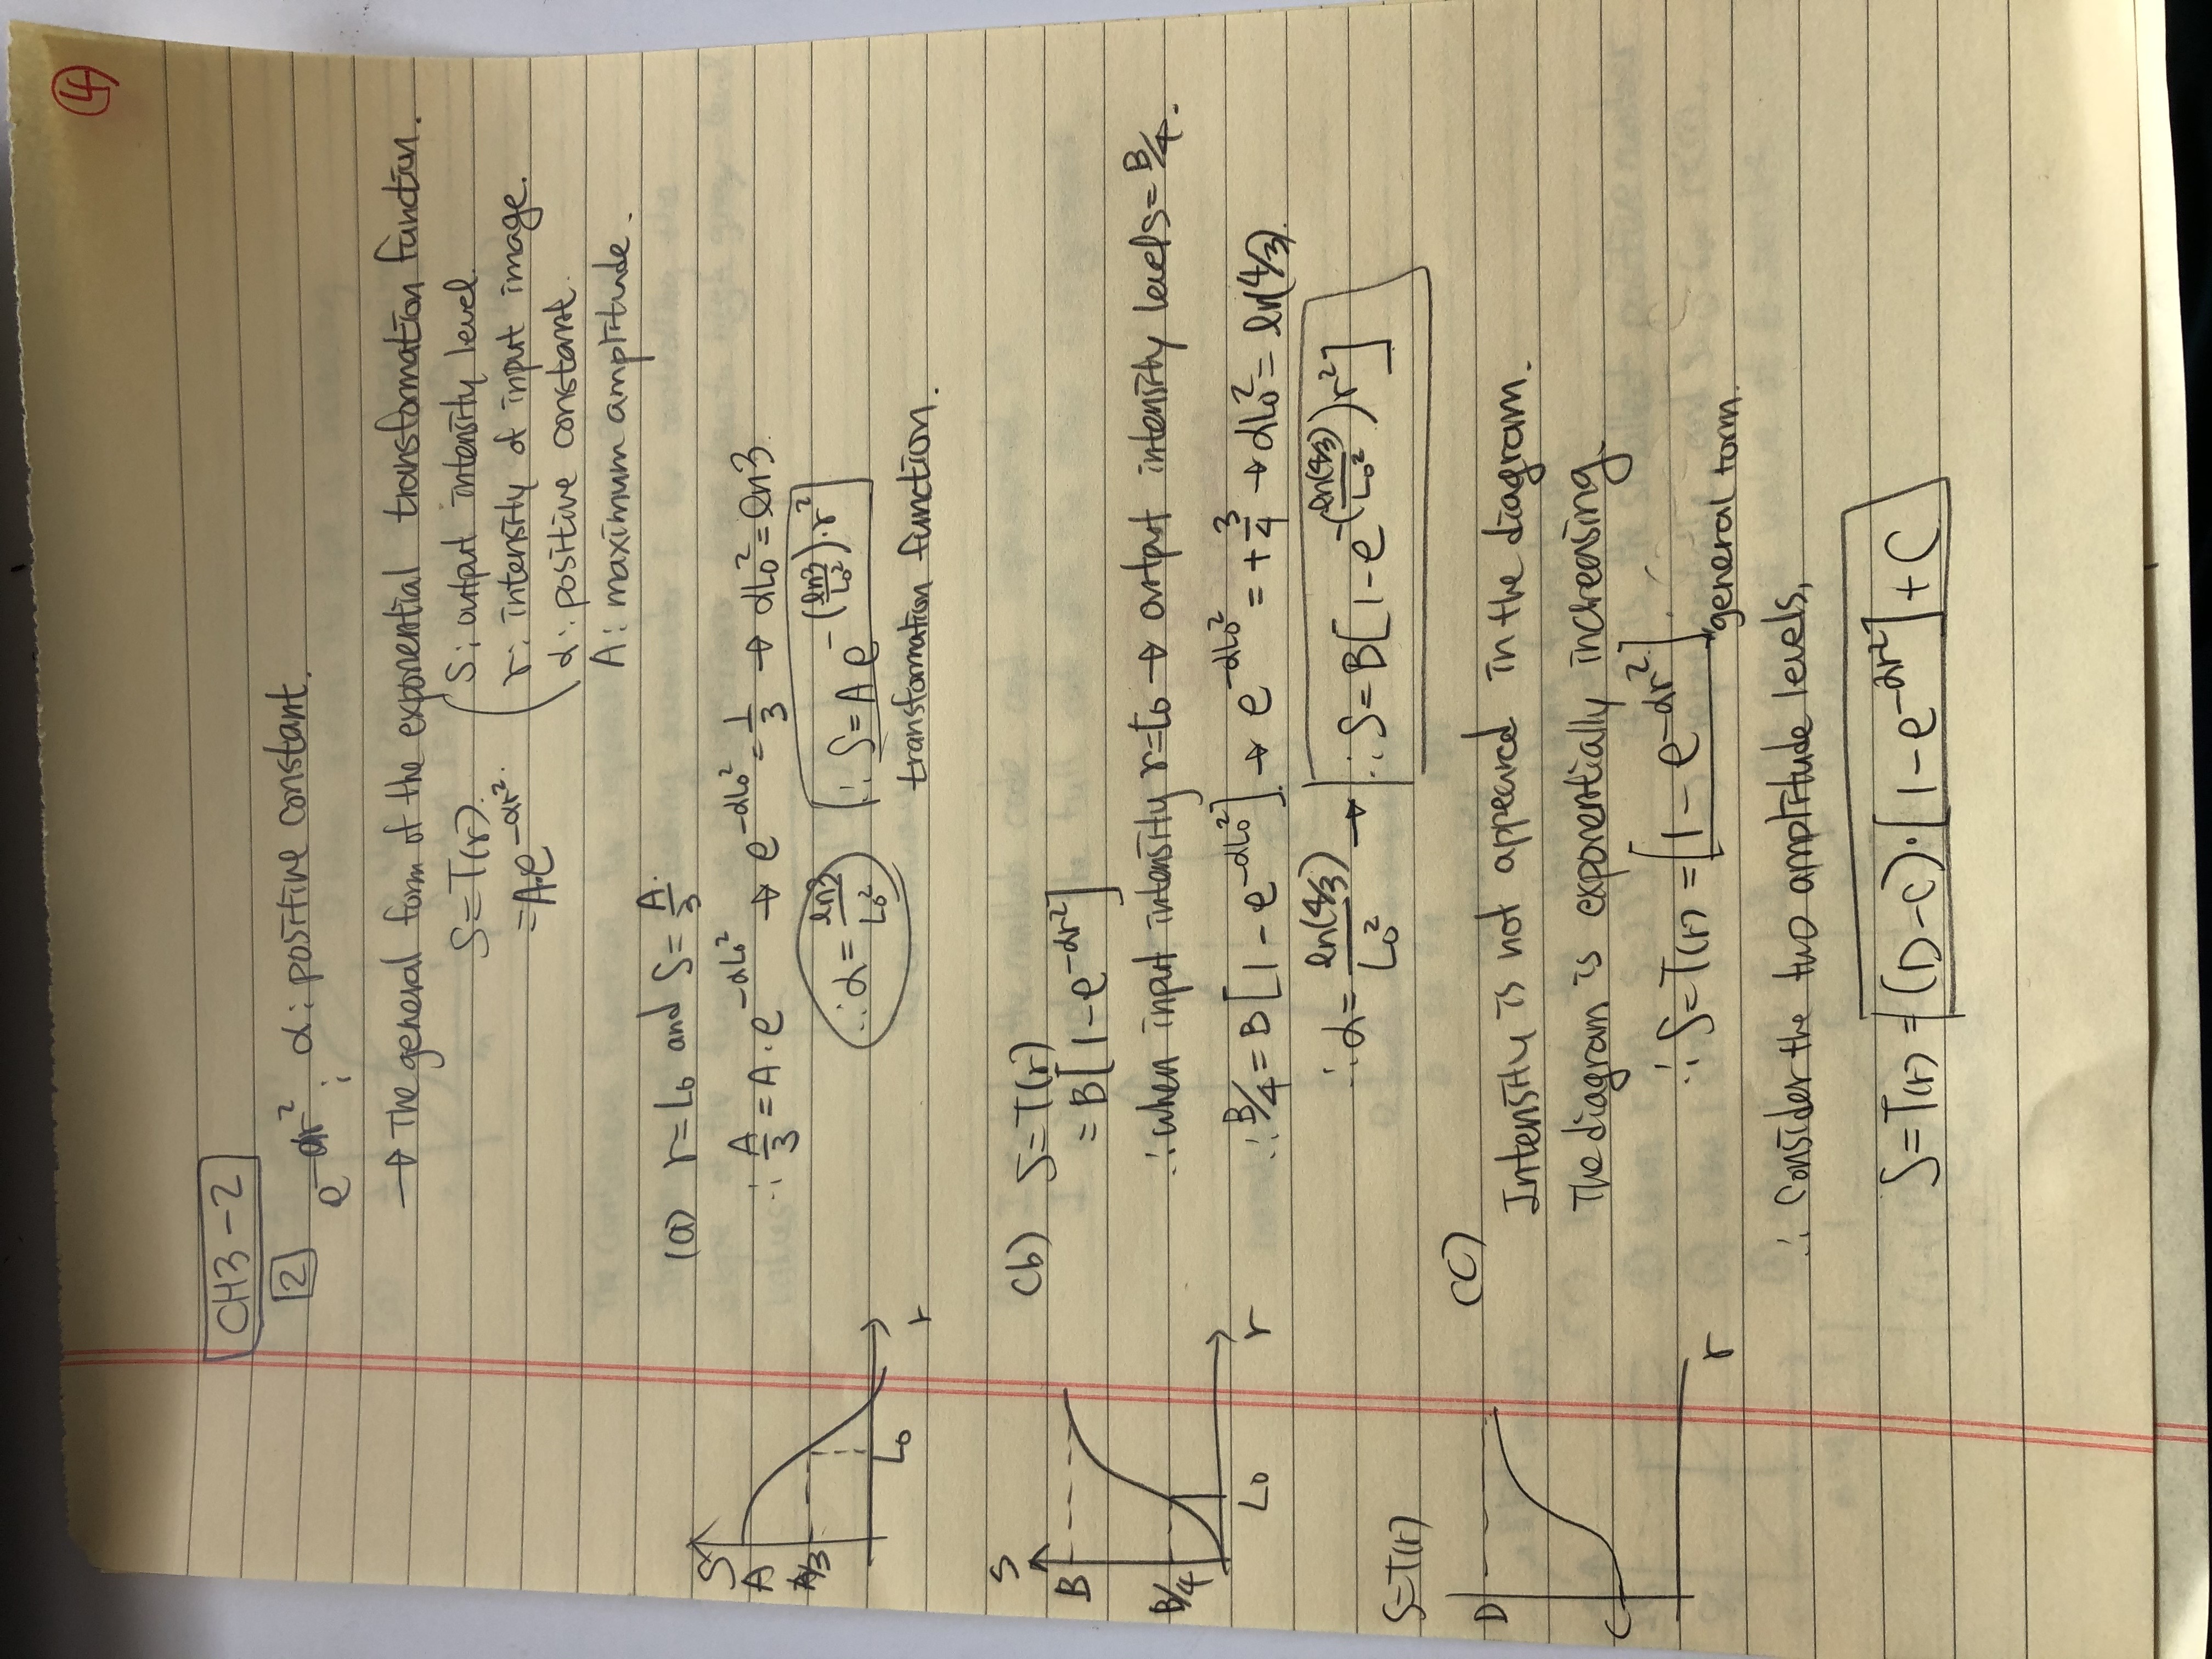 ④
CH3-2
2
e^{-αr²}; α: positive constant.
→ The general form of the exponential transformation function.
S=T(r).
=A·e^{-αr²}.
S: output intensity level.
r: intensity of input image.
α: positive constant.
A: maximum amplitude.
(a) r=L₀ and S=A/3.
∴ A/3 = A·e^{-αL₀²} → e^{-αL₀²} = 1/3 → αL₀² = ln3.
∴ α = ln3/L₀²
∴ S=A e^{-(ln3/L₀²)·r²}
transformation function.
S
A
A/3
L₀
r
(b) S=T(r)
= B[1-e^{-αr²}]
∴ when input intensity r=L₀ → output intensity levels=B/4.
∴ B/4 = B[1-e^{-αL₀²}]. → e^{-αL₀²} = +3/4 → αL₀² = ln(4/3).
∴ α = ln(4/3)/L₀² → ∴ S=B[1-e^{-(ln(4/3)/L₀²)r²}]
S
B
B/4
L₀
r
(C)
Intensity is not appeared in the diagram.
The diagram is exponentially increasing.
∴ S=T(r) = [1-e^{-αr²}].
general form.
∴ Consider the two amplitude levels,
S=T(r) = (D-C)·[1-e^{-αr²}]+C
S=T(r)
D
C
r